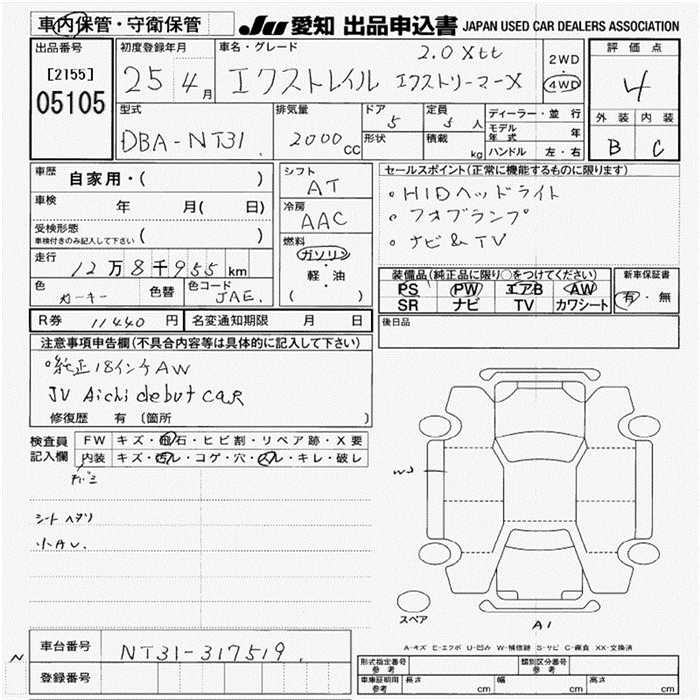 車内保管・守衛保管
JU 愛知 出品申込書 JAPAN USED CAR DEALERS ASSOCIATION
出品番号
[2155]
05105
初度登録年月
25 4月
車名・グレード
2.0 Xtt
エクストレイル エクストリーマーX
2WD
・
4WD
評価点
4
外装 内装
B C
型式
DBA-NT31
排気量
2000cc
ドア
5
形状
定員
5人
積載
kg
ディーラー・並行
モデル年式 年
ハンドル 左・右
車歴
自家用・( )
車検 年 月( 日)
受検形態
車検付きのみ記入して下さい ( )
走行
12万8千955km
色
ガーキー
色替
色コード
JAE.
シフト
AT
冷房
AAC
燃料
ガソリン
・
軽・油
( )
セールスポイント(正常に機能するものに限ります)
・HIDヘッドライト
・フォブランプ
・ナビ&TV
装備品(純正品に限り○をつけてください)
PS PW エアB AW
SR ナビ TV カワシート
新車保証書
有・無
後日品
R券 11440円 名変通知期限 月 日
注意事項申告欄(不具合内容等は具体的に記入して下さい)
・純正18インチAW
JU Aichi debut CAR
修復歴 有(箇所 )
検査員
記入欄
FW キズ・飛石・ヒビ割・リペア跡・X要
内装 キズ・汚レ・コゲ・穴・スレ・キレ・破レ
シートヘタリ
小AU.
スペア
A1
A-キズ E-エクボ U-凹み W-補修跡 S-サビ C-腐食 XX-交換済
車台番号 NT31-317519.
登録番号
型式指定番号 参考
類別区分番号 参考
車庫証明用 参考 長さ cm 幅 cm 高さ cm